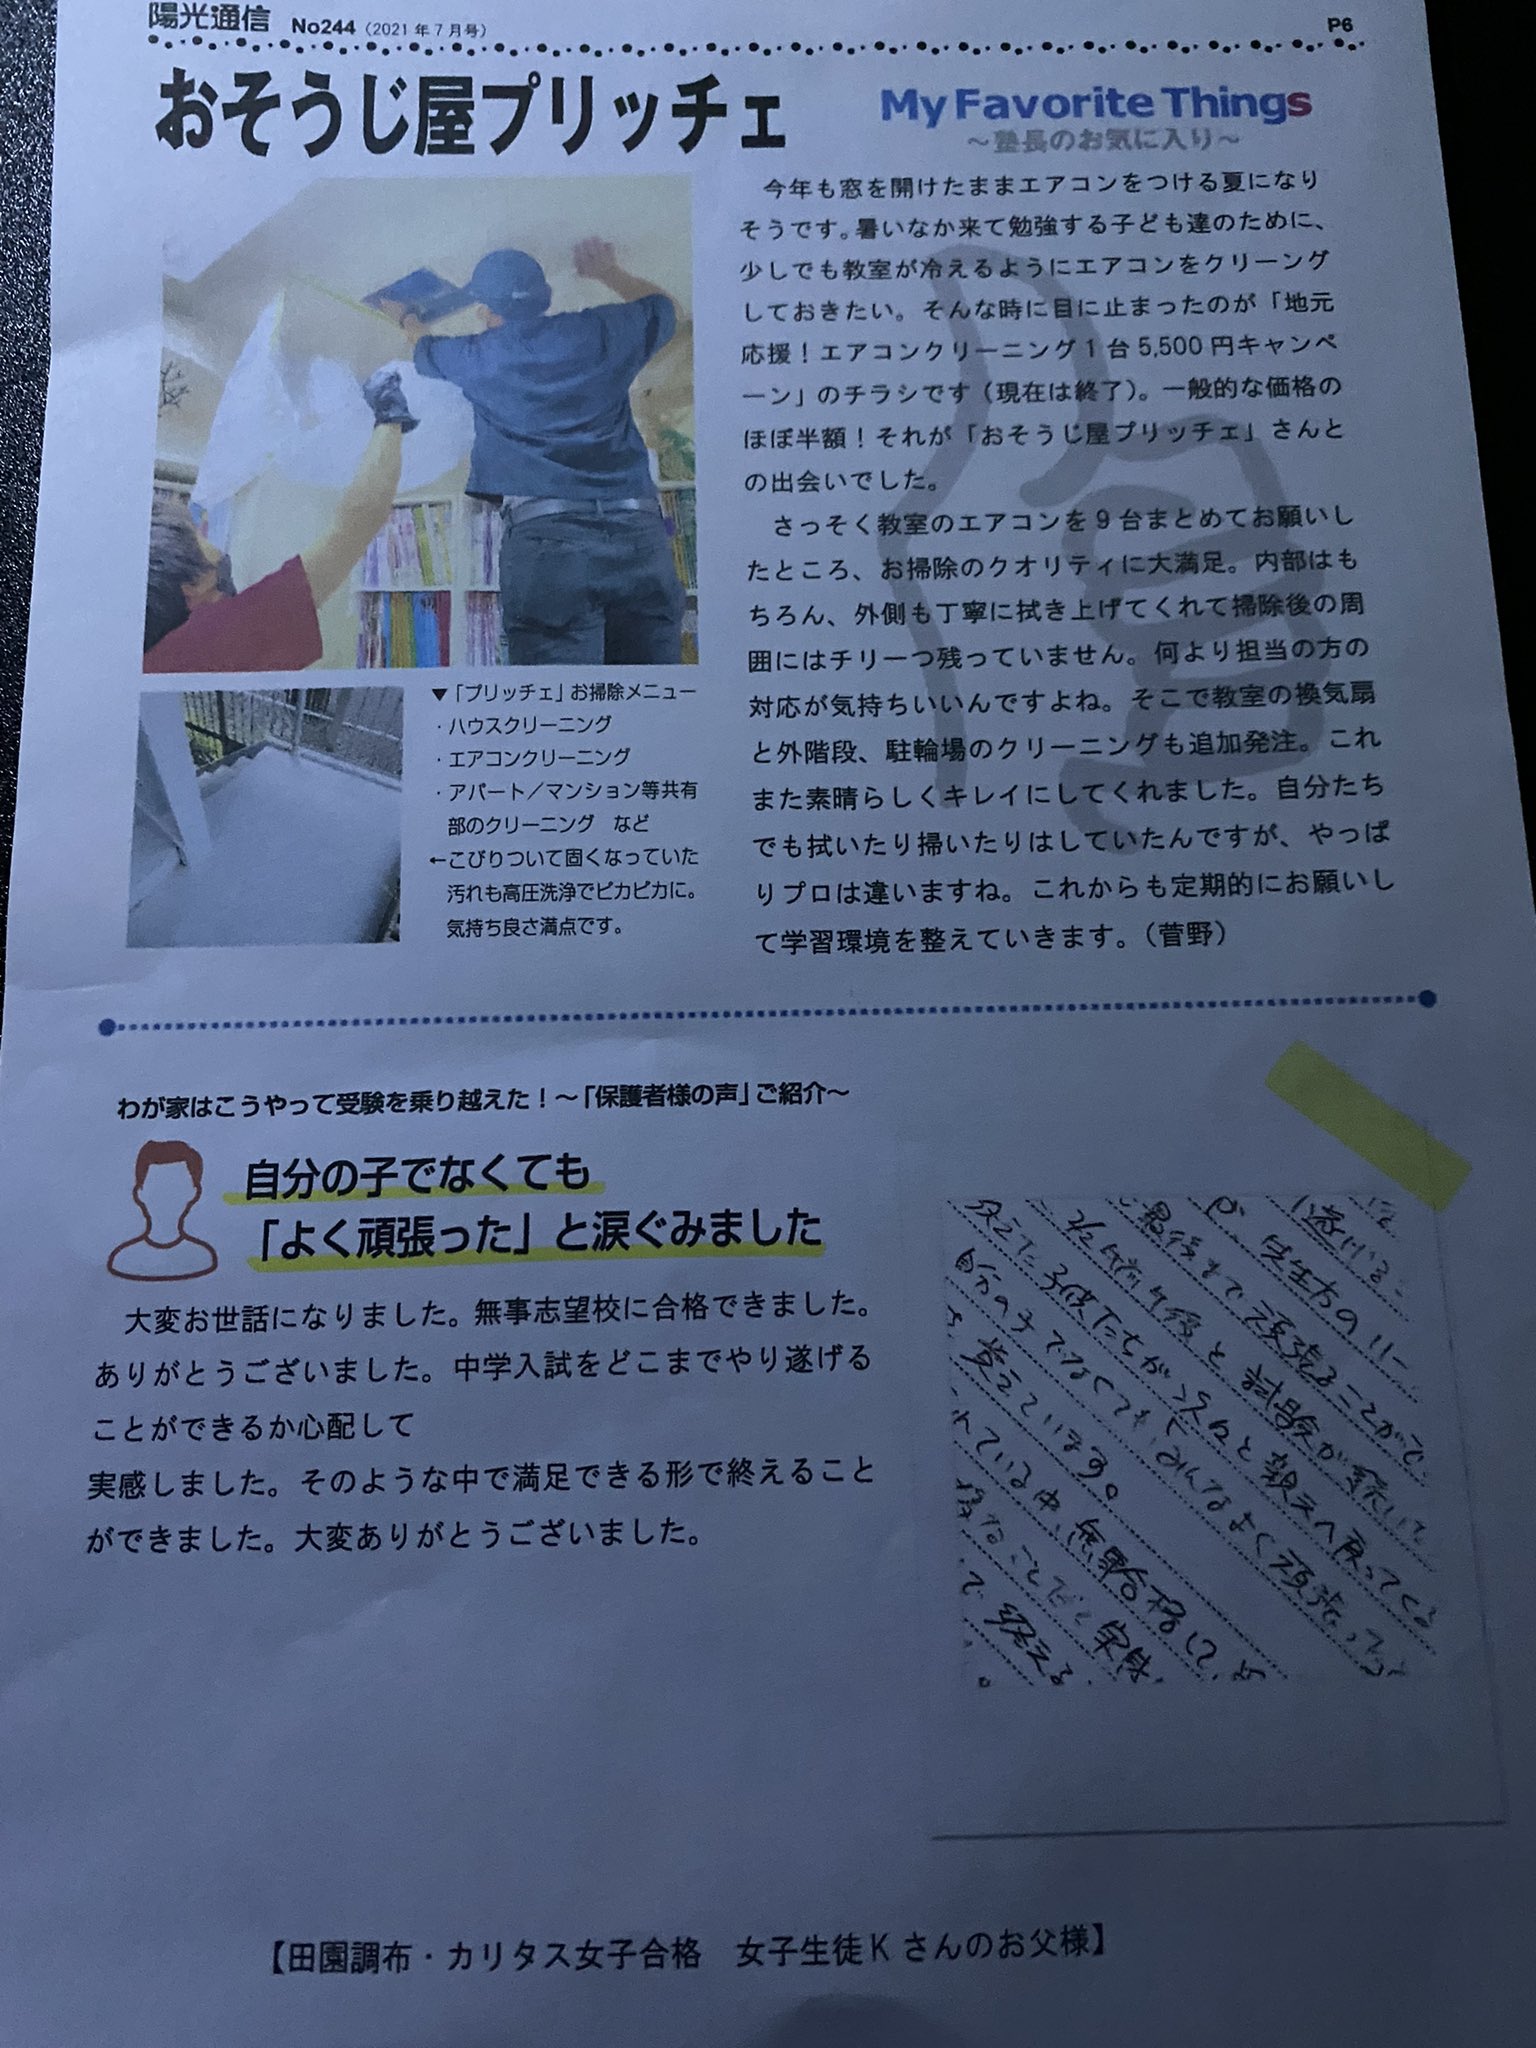 陽光通信 No244（2021年7月号）
P6
おそうじ屋プリッチェ
My Favorite Things
～塾長のお気に入り～
今年も窓を開けたままエアコンをつける夏になり
そうです。暑いなか来て勉強する子ども達のために、
少しでも教室が冷えるようにエアコンをクリーング
しておきたい。そんな時に目に止まったのが「地元
応援！エアコンクリーニング1台5,500円キャンペ
ーン」のチラシです（現在は終了）。一般的な価格の
ほぼ半額！それが「おそうじ屋プリッチェ」さんと
の出会いでした。
さっそく教室のエアコンを9台まとめてお願いし
たところ、お掃除のクオリティに大満足。内部はも
ちろん、外側も丁寧に拭き上げてくれて掃除後の周
囲にはチリ一つ残っていません。何より担当の方の
対応が気持ちいいんですよね。そこで教室の換気扇
と外階段、駐輪場のクリーニングも追加発注。これ
また素晴らしくキレイにしてくれました。自分たち
でも拭いたり掃いたりはしていたんですが、やっぱ
りプロは違いますね。これからも定期的にお願いし
て学習環境を整えていきます。（菅野）
▼「プリッチェ」お掃除メニュー
・ハウスクリーニング
・エアコンクリーニング
・アパート／マンション等共有
部のクリーニング など
←こびりついて固くなっていた
汚れも高圧洗浄でピカピカに。
気持ち良さ満点です。
わが家はこうやって受験を乗り越えた！～「保護者様の声」ご紹介～
自分の子でなくても
「よく頑張った」と涙ぐみました
大変お世話になりました。無事志望校に合格できました。
ありがとうございました。中学入試をどこまでやり遂げる
ことができるか心配して
実感しました。そのような中で満足できる形で終えること
ができました。大変ありがとうございました。
先生方の
最後まで頑張ることがで
2/2 午前午後と試験が続いて
子供たちが次々と親元へ戻ってくる
自分の子でなくてもみんなよく頑張って
覚えています。
ている中、無事合格して
なことだと実感
で終える
【田園調布・カリタス女子合格 女子生徒Kさんのお父様】